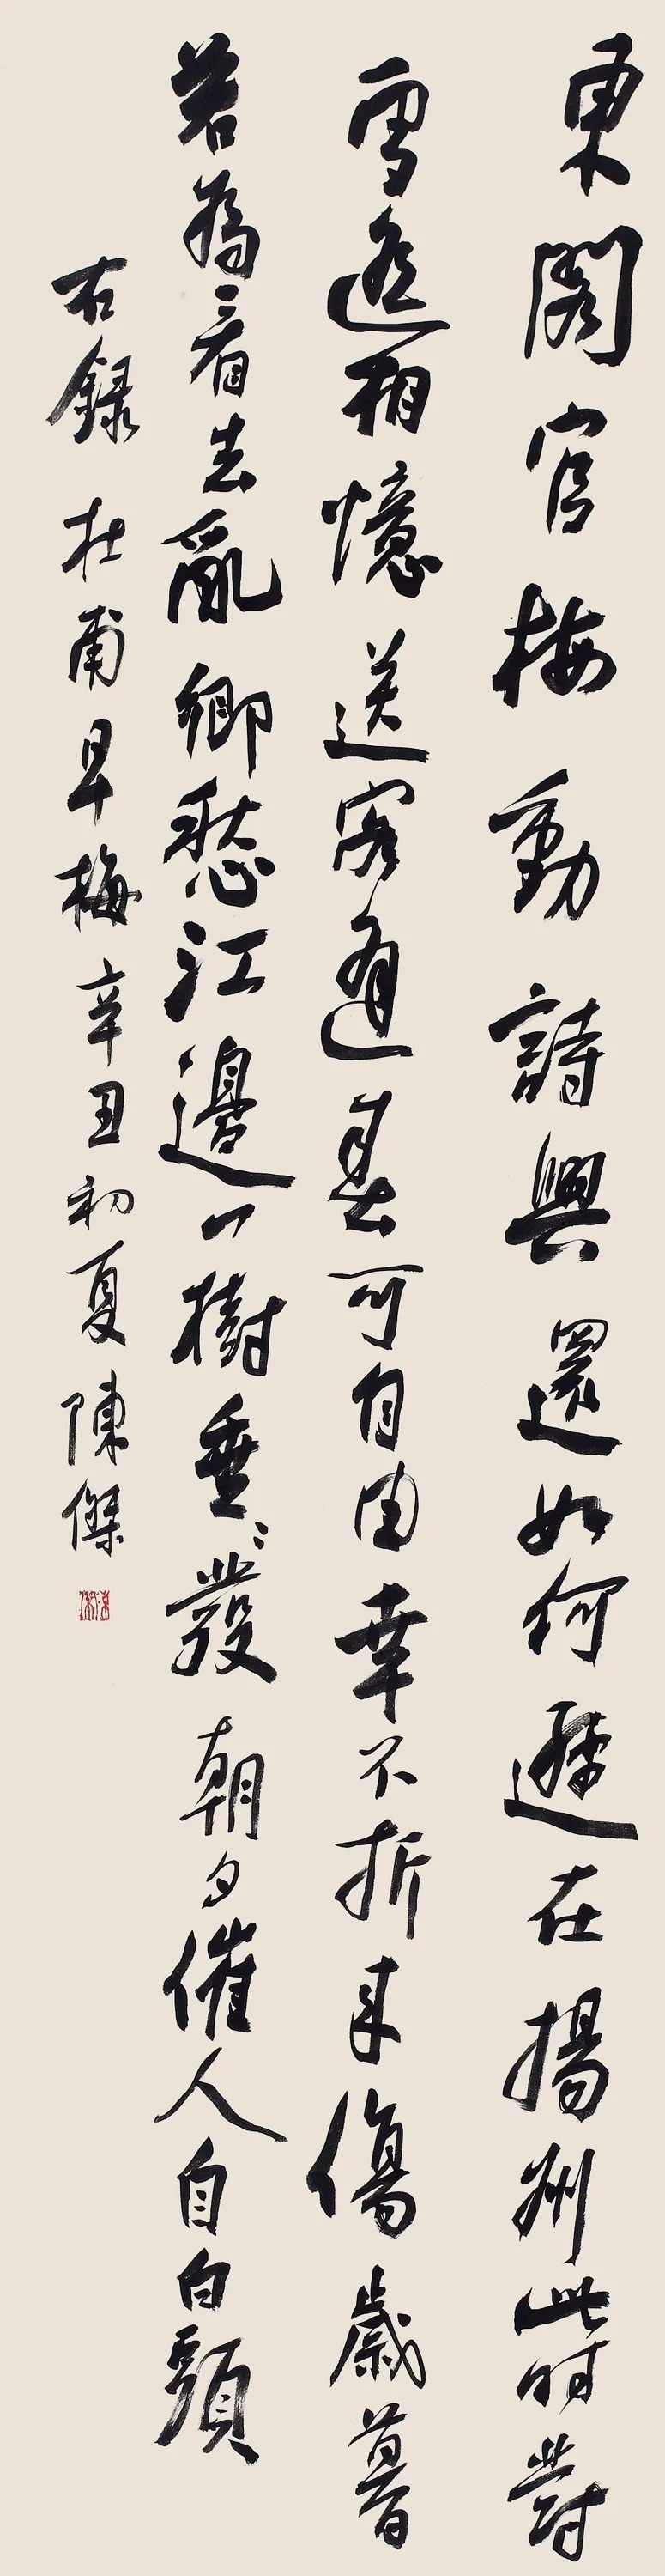 東閣官梅動詩興還如何遜在揚州此时對
雪遙相憶送客逢春可自由幸不折来傷歲暮
若為看去亂鄉愁江邊一樹垂〻發朝夕催人自白頭
右録杜甫早梅辛丑初夏陳傑
陳傑